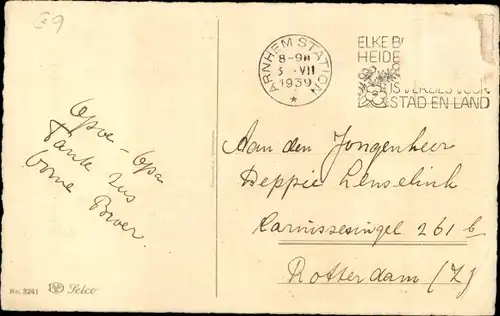 G9
ARNHEM STATION
8-9N
3 .VII
1939
ELKE
HEIDE
IS VERLIES VOOR
STAD EN LAND
Opoe - Opa
Tante Zus
Oome Broer.
Aan den Jongenheer
Deppie Lenselink
Karnissesingel 261 b
Rotterdam (Z)
No. 3241 Selco